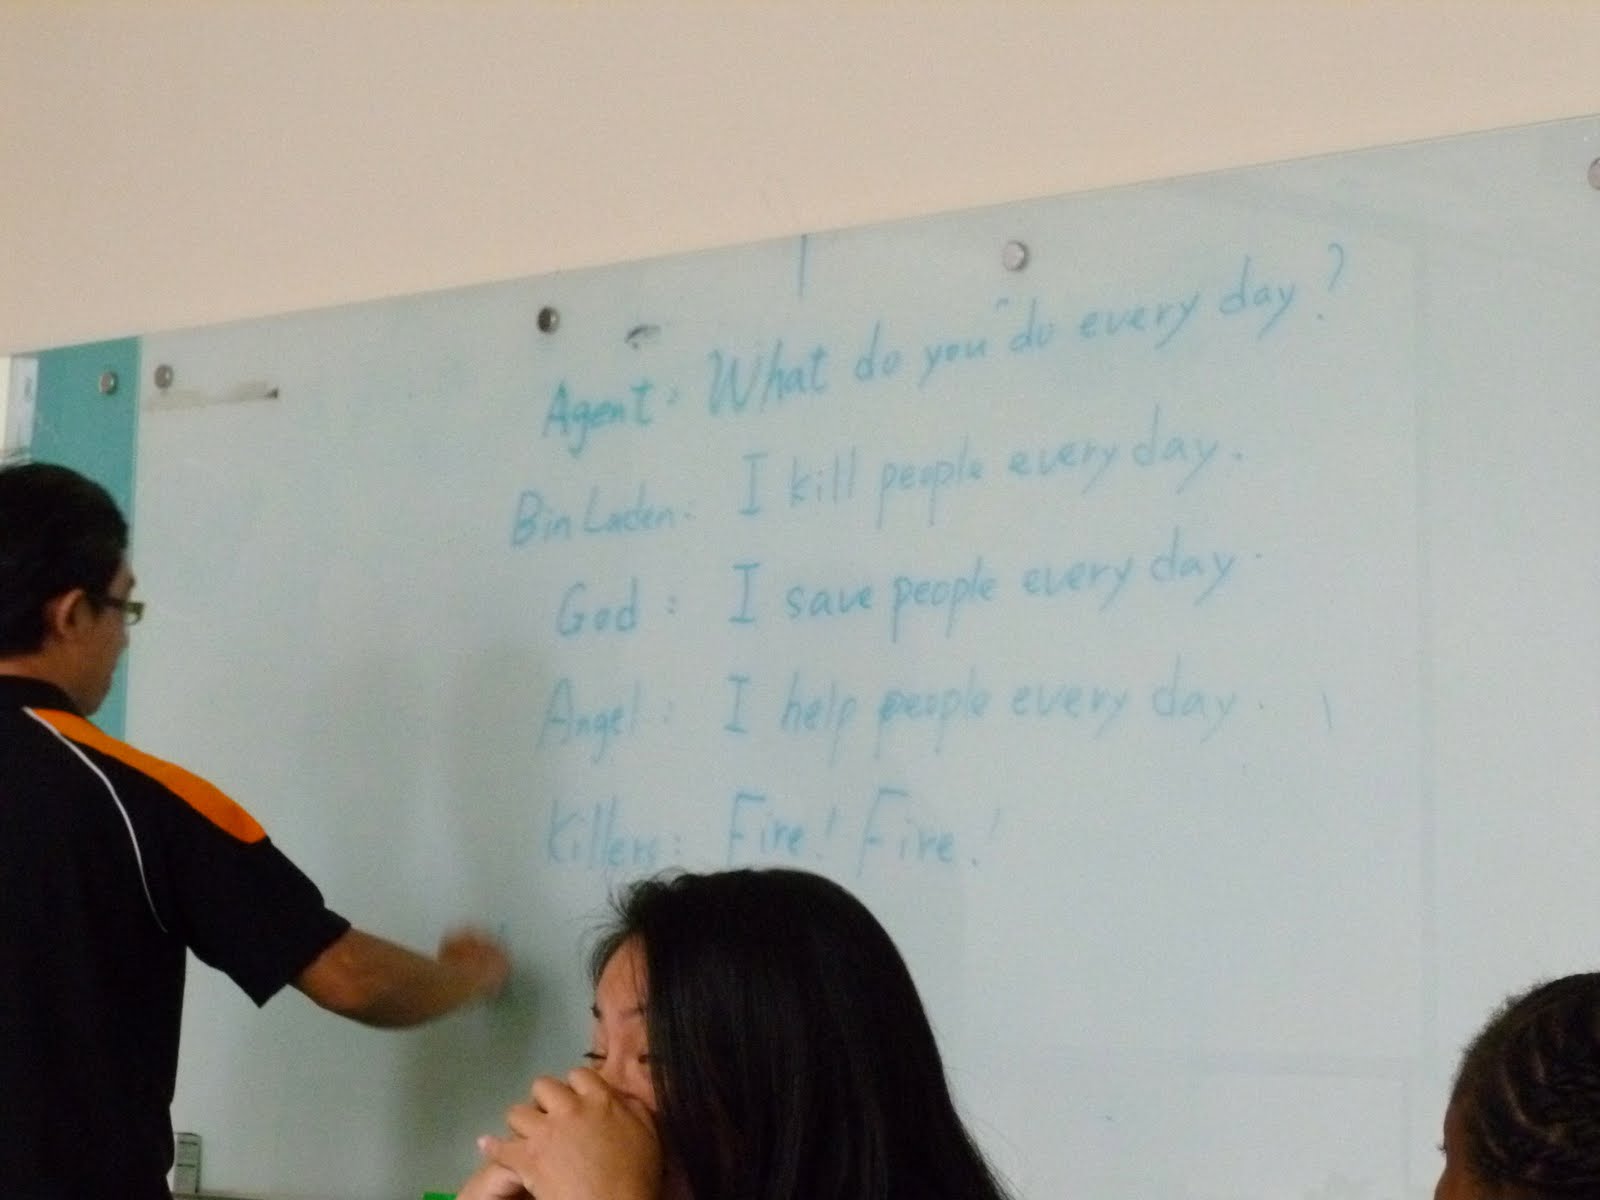 Agent: What do you do every day?
Bin Laden: I kill people every day.
God: I save people every day.
Angel: I help people every day.
Killers: Fire! Fire!